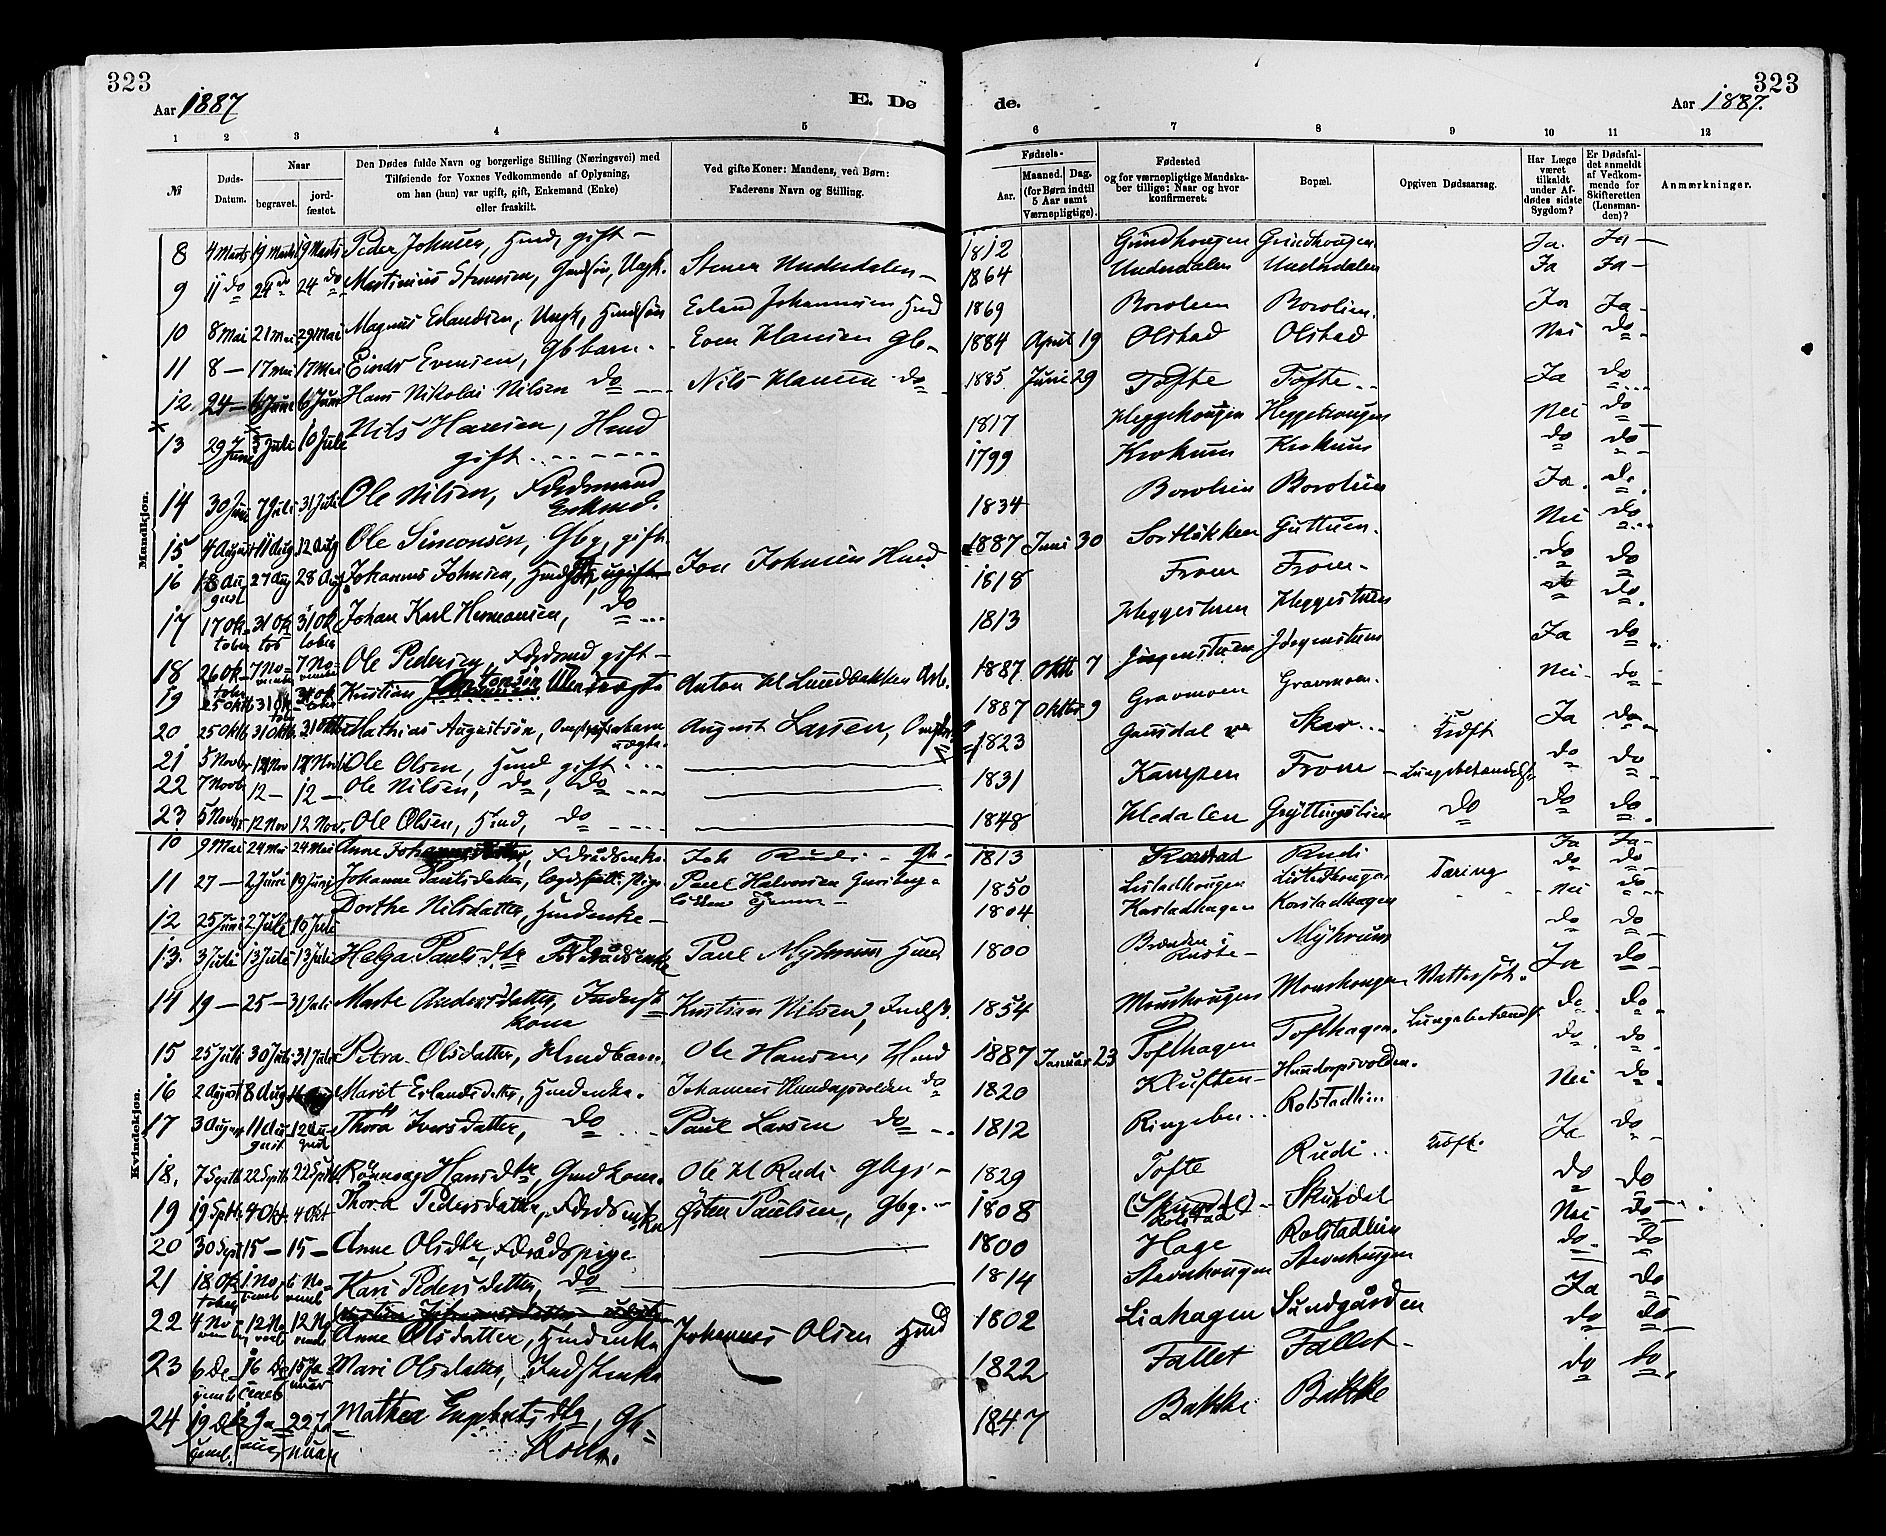 323
Aar 1887
E. Dø
de.
323
Aar 1887.
1 2 3 4 5 6 7 8 9 10 11 12
№
Døds-Datum.
Naar
begravet.
jord-fæstet.
Den Dødes fulde Navn og borgerlige Stilling (Næringsvei) med
Tilføiende for Voxnes Vedkommende af Oplysning,
om han (hun) var ugift, gift, Enkemand (Enke)
eller fraskilt.
Ved gifte Koner: Mandens, ved Børn:
Faderens Navn og Stilling.
Fødsels-
Aar.
Maaned. Dag.
(for Børn indtil
5 Aar samt
Værnepligtige).
Fødested
og for værnepligtige Mandska-
ber tillige: Naar og hvor
konfirmeret.
Bopæl.
Opgiven Dødsaarsag.
Har Læge
været
tilkaldt
under Af-
dødes sidste
Sygdom?
Er Dødsfal-
det anmeldt
af Vedkom-
mende for
Skifteretten
(Lensman-
den)?
Anmærkninger.
Mandkjøn.
8 4 Marts 19 Marts 19 Marts Peder Johnsen, Hmd, gift – 1812 Grindhougen Grindhougen Ja. Ja –
9 11 do 24 do 24 do Martinius Stenersen, Ungk. Stener Underdalen – 1864 Underdalen Underdalen Ja Ja –
10 8 Mai 21 Mai 29 Mai Magnus Erlandsen, Ungk, Erland Johannesen Hmd 1869 Borolien Borolien. Ja Ja –
11 8 – 17 Mai 17 Mai Einar Evensen, Gbbarn Even Hansen Gb – 1884 April 19 Olstad Olstad Nei do
12 24 – 6 Juni 6 Juni Hans Nikolai Nilsen do Nils Hansen do 1885 Juni 29 Tofte Tofte Ja do
13 29 Juni 3 Juli 10 Juli Nils Hansen, Hmd
gift 1817 Heggehougen Heggehougen Nei do
14 30 Juni 7 Juli 31 Juli Ole Nilsen, Fdrdsmand
Enkmd. 1799 Krokum Krokum do do
15 4 August 11 Aug 12 Aug Ole Simonsen, Gbg, gift 1834 Borolien Borolien Ja. do
16 18 August 27 Aug 28 Aug Johannes Johnsen, Jon Johnsen Hmd 1887 Juni 30 Sortløkken Guttuen Nei do
17 17 Oktober 31 Oktober 31 Oktober Johan Karl Hermansen, do 1818 Fron Fron do do
18 26 Oktober 7 November 7 November Ole Pedersen, Fdrdsmd gift – 1813 Heggestuen Heggestuen do do
19 25 Oktb 31 Oktober 31 Oktober Kristian Antonsen Uægte Anton H Lundbakken Arb. 1887 Oktb 7 Jørgenstuen Jørgenstuen Ja do
20 25 Oktb 31 Oktb 31 Oktb Mathias Augustsøn,
uægte August Larsen, 1887 Oktbr 9 Gravmoen Gravmoen Nei do
21 5 Novbr 12 Nov 12 Novb Ole Olsen, Hmd gift 1823 Gausdal Skar Tidft Ja do
22 7 Novbr 12 – 12 – Ole Nilsen, do, do 1831 Kampen Fron – Lungebetændelse do do
23 5 Novbr 12 Nov 12 Nov. Ole Olsen, Hmd, do 1848 Hedalen Grýttingslien do do do
Kvindekjøn.
10 9 Mai 24 Mai 24 Mai Anne Fdraadsenke Joh Rudi – Gb – 1813 Karstad Rudi Ja Ja –
11 27 – 2 Juni 19 Juni Johanne Paulsdatter, Paul Halvorsen 1850 Listadhougen Listadhougen Tæring do do
12 25 Juni 2 Juli 10 Juli Dorthe Nilsdatter, Hmdenke – 1804 Karstadhagen Karstadhagen Nei do
13. 3 Juli 13 Juli 13 Juli Helga Paulsdtr Fdraadsenke Paul Myhrum Hmd 1800 Brænden i
Kuste – Myhrum do do
14 19 – 25 – 31 Juli Marte Andersdatter, Inderst
kone Kristian Nilsen, Indst. 1854 Moushougen Moushougen Wattersot. Ja do
15 25 Juli 30 Juli 31 Juli Petra Olsdatter, Hmdbarn Ole Hansen, Hmd 1887 Januar 23 Tofthagen Tofthagen Lungebetændelse do do
16 2 August 8 Aug Marit Erlandsdatter, Hmdenke. Johannes Hundorpsvolden do 1820 Kluften – Hundorpsvolden. do do
17 3 August 11 August 12 August Thora Iversdatter, do Paul Larsen do 1812 Ringebu Rolstadlien Nei do
18. 7 Septb 22 Septb 22 Septb Rønnaug Hansdtr, Gmdkone Ole H Rudi Gbg – 1829 Tofte Rudi Tidft. Ja do
19 19 Septb 4 Okt. 4 Okt Thora Pedersdatter, Fdrdsenke Østen Paulsen, Gbg. – 1808 (Skurdal) –
Rolstad Skurdal do do
20 30 Sept 15 – 15 – Anne Olsdtr, Fdraadspige 1800 Hage Rolstadlien Nei do
21 18 Oktober 1 Novemb 6 Novemb Kari Pedersdatter, do 1814 Stevnhougen Stevnhougen do. do
22 4 November 12 Novemb 12 Novemb Anne Olsdatter, Hmdenke Johannes Olsen Hmd 1802 Liahagen Sundgården Ja do
23 6 Decemb 16 Decemb 15 Januar Mari Olsdatter, Indstenke 1822 Fallet Fallet – do do
24 19 Decemb. 2 Januar 22 Januar Mathea Engebretsdtr, Gb
Kone. 1847 Bakke Bakke do do